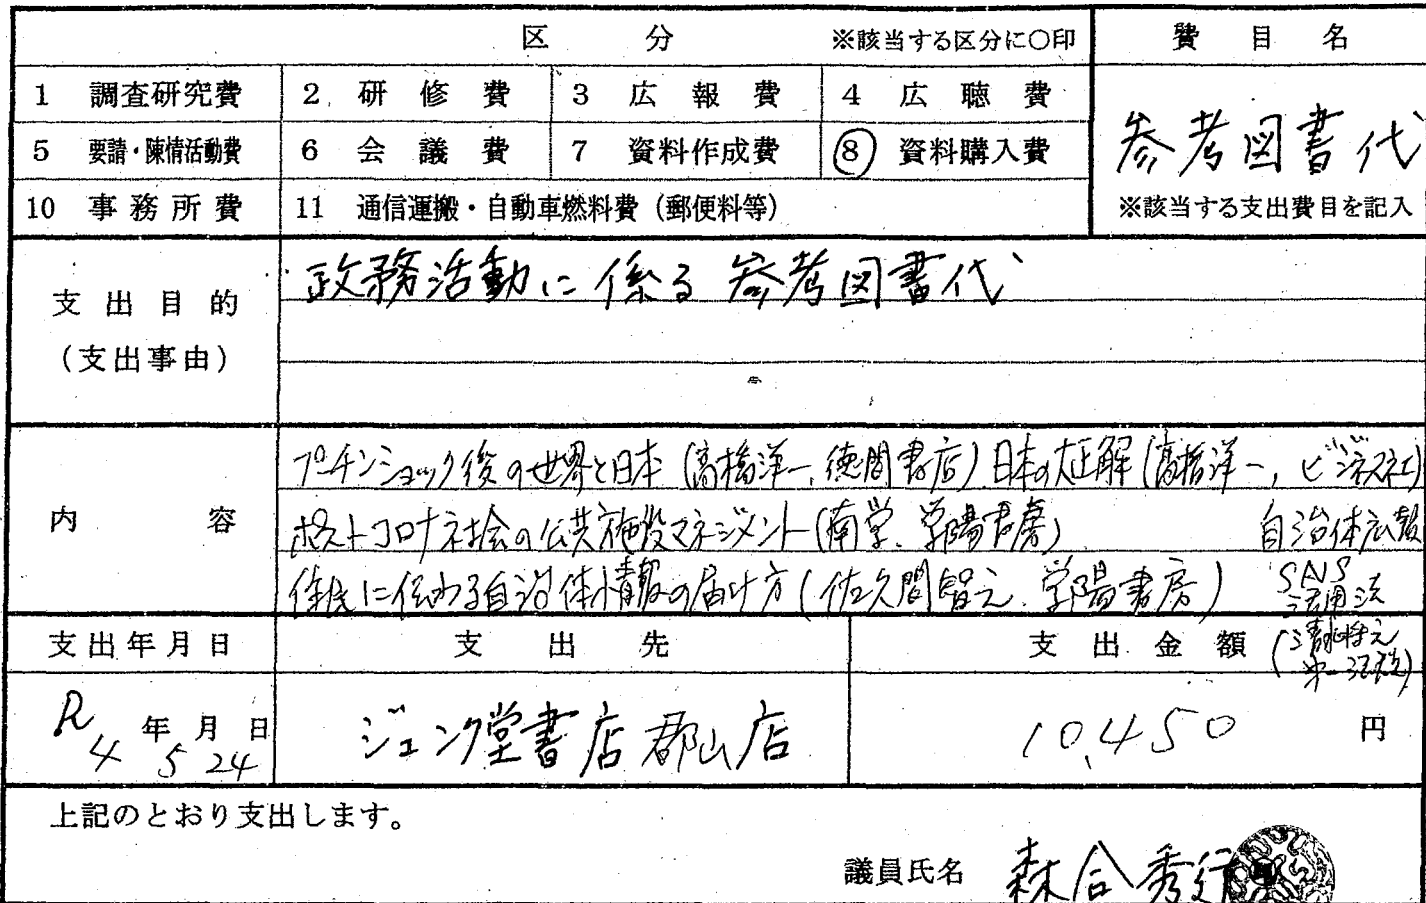 区分 ※該当する区分に○印 費目名
1 調査研究費 2 研修費 3 広報費 4 広聴費
参考図書代
5 要請・陳情活動費 6 会議費 7 資料作成費 ⑧ 資料購入費
10 事務所費 11 通信運搬・自動車燃料費（郵便料等） ※該当する支出費目を記入
支出目的
（支出事由）
政務活動に係る参考図書代
内容
プーチンショック後の世界と日本（高橋洋一、徳間書店）日本の大正解（高橋洋一、ビジネス社）
ポストコロナ社会の公共施設マネジメント（南学、学陽書房） 自治体広報
住民に伝わる自治体情報の届け方（佐久間智之、学陽書房） SNS
活用法
支出年月日 支出先 支出金額
R4年5月24日 ジュンク堂書店郡山店 10,450円
上記のとおり支出します。
議員氏名 森合秀行